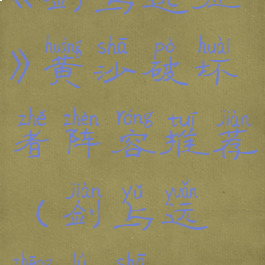 《剑与远征
huáng shā pò huài
》黄沙破坏
zhě zhèn róng tuī jiàn
者阵容推荐
jiàn yǔ yuǎn
（剑与远